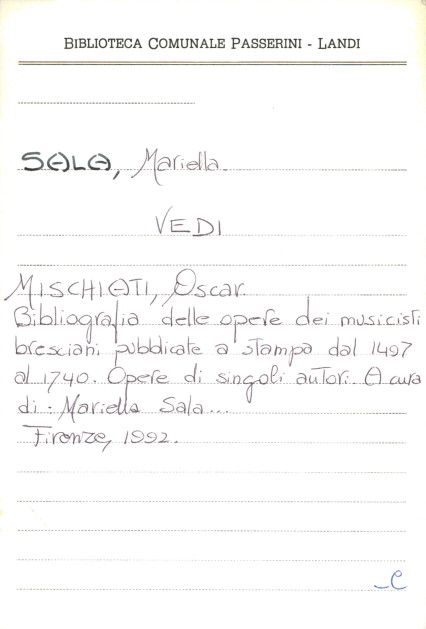 BIBLIOTECA COMUNALE PASSERINI - LANDI
SALA, Mariella.
VEDI
MISCHIATI, Oscar.
Bibliografia delle opere dei musicisti
bresciani pubblicate a stampa dal 1497
al 1740. Opere di singoli autori. A cura
di: Mariella Sala...
Firenze, 1992.